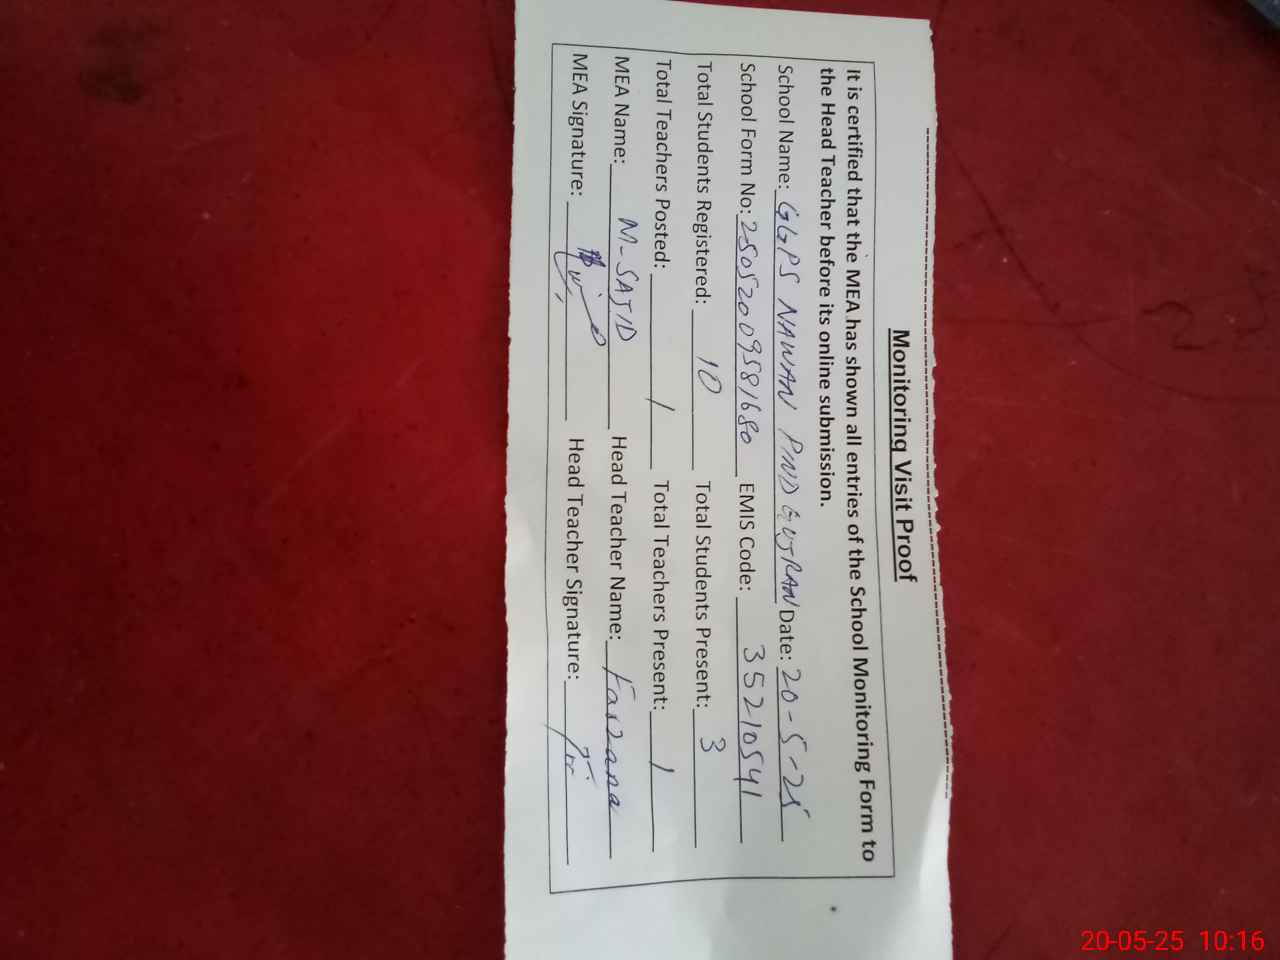 Monitoring Visit Proof
It is certified that the MEA has shown all entries of the School Monitoring Form to
the Head Teacher before its online submission.
School Name: GGPS NAWAN PIND GUJRAN Date: 20-5-25
School Form No: 25052009581680 EMIS Code: 35210541
Total Students Registered: 10 Total Students Present: 3
Total Teachers Posted: 1 Total Teachers Present: 1
MEA Name: M-SAJID Head Teacher Name: Farzana
MEA Signature: Head Teacher Signature:
20-05-25 10:16